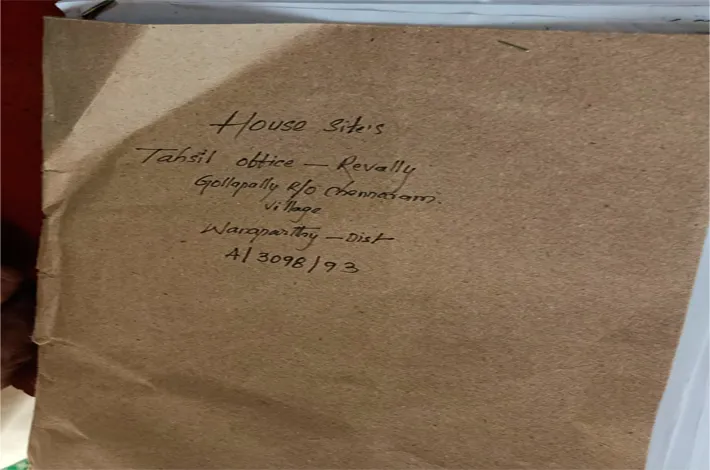 House Site's
Tahsil office - Revally
Gollapally R/o Chennaram.
village
Wanaparthy - Dist
A/3098/93